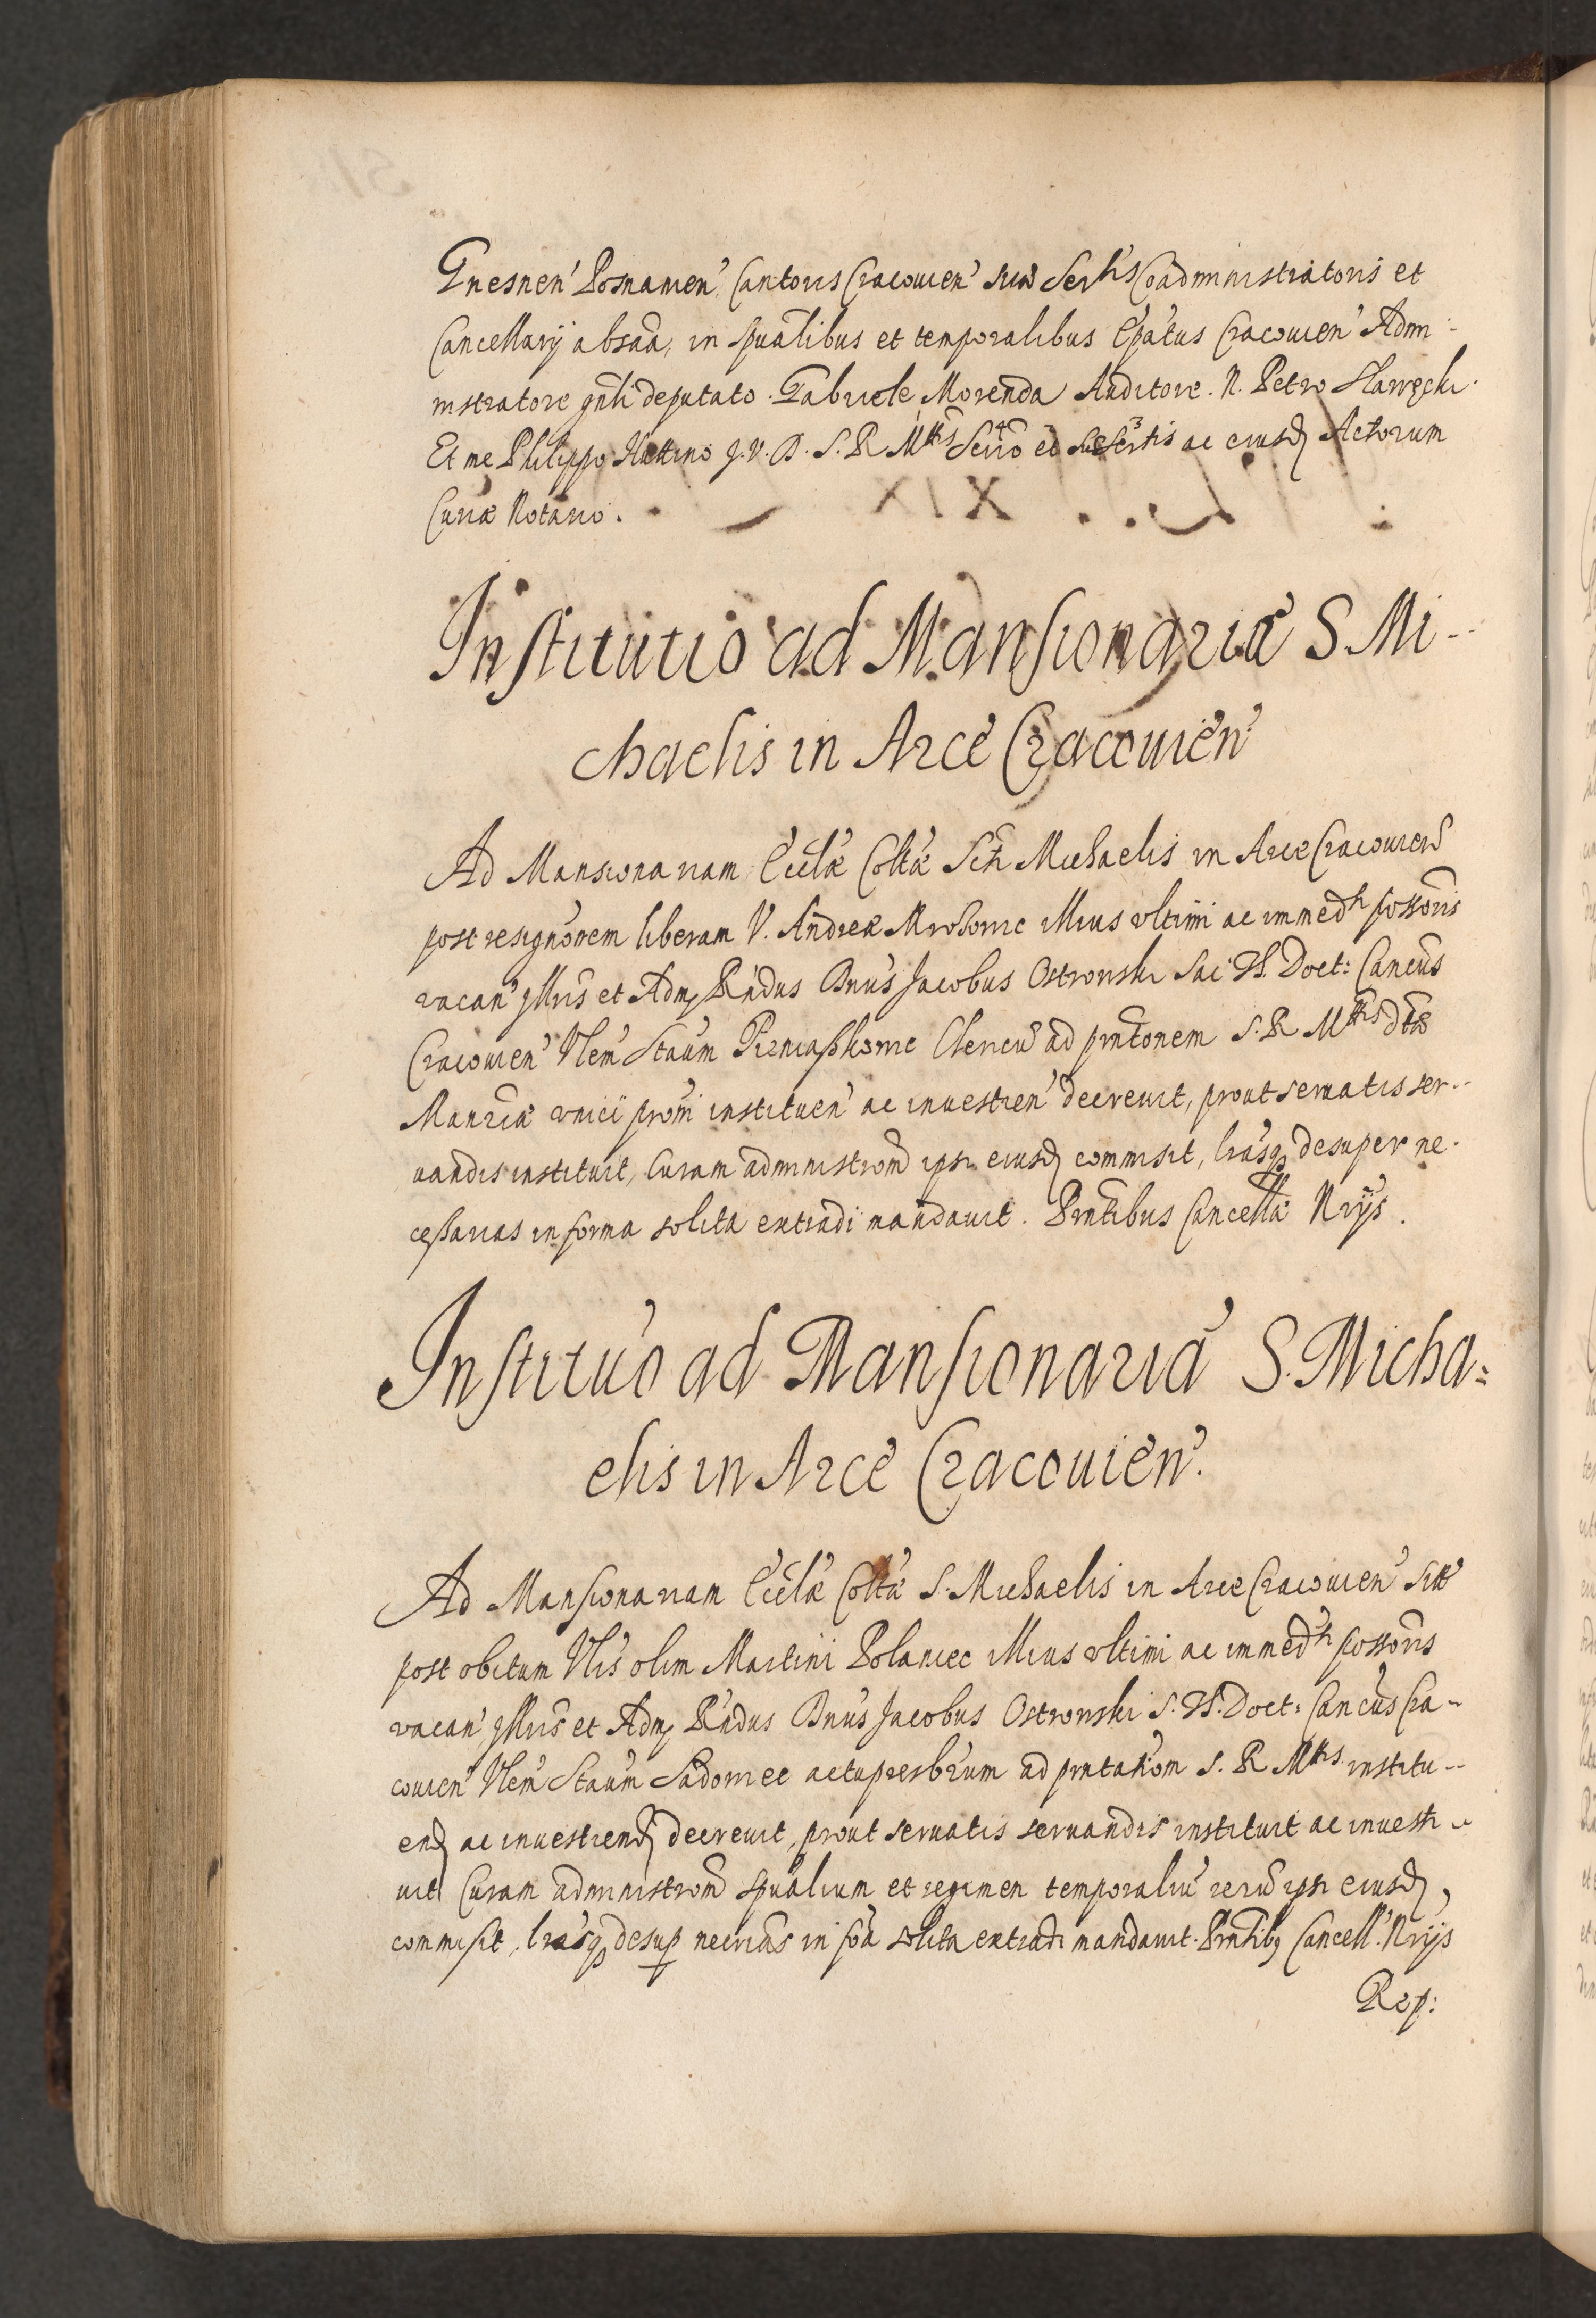 Gnesnen' Posnanien' Cantoris Cracouien' suae Sertis Coadministratoris et
Cancellarij absaa, in spualibus et temporalibus Epatus Cracouien' Admi-
nistratore gnli deputato. Gabriele Morenda Auditore. N. Petro Slawęcki.
Et me Philippo Huttino J. V. D. S. R. Mttis Secrio ac eiusd Actorum
Curiæ Notario.
Institutio ad Mansionariã S. Mi-
chaelis in Arce Cracouien'
Ad Mansionariam Ecclæ Coltæ Scti Michaelis in Arce Cracouien
post resignonem liberam V. Andreæ illius vltimi ac immedti possoris
vacan' Illris et Adm Rndus Dnus Jacobus Ostrowski Sac. Th. Doct: Cancus
Cracouien' Vlem Staum Clericu ad pntonem S. R. Mttis dtæ
Manriæ vnici promi instituen' ac inuestien' decreuit, prout seruatis ser-
uandis instituit, Curam administrom ipsi eiusd commisit, lrasq desuper ne-
cessarias in forma solita extradi mandauit. Pntibus Cancella Nrijs.
Instituo ad Mansionariã S. Micha=
elis in Arce Cracouien'.
Ad Mansionariam Eccla Colta S. Michaelis in Arce Cracouien' sit
post obitum Vlis olim Martini Polaniec illius vltimi ac immedti possoris
vacan' Illris et Adm Rndus Dnus Jacobus Ostrowski S. Th. Doct: Cancus Cra-
couien' Vlem Staum Sadomec actu presbrum ad pntanom S. R. Mttis institu-
end ac inuestiend decreuit, prout seruatis seruandis instituit ac inuesti-
uit Curam administrom spualium et regimen temporaliu reru ipsi eiusd,
commisit, lrasq desup necrias in foa solita extradi mandauit. Pntibq Cancell. Nrijs
Rep: